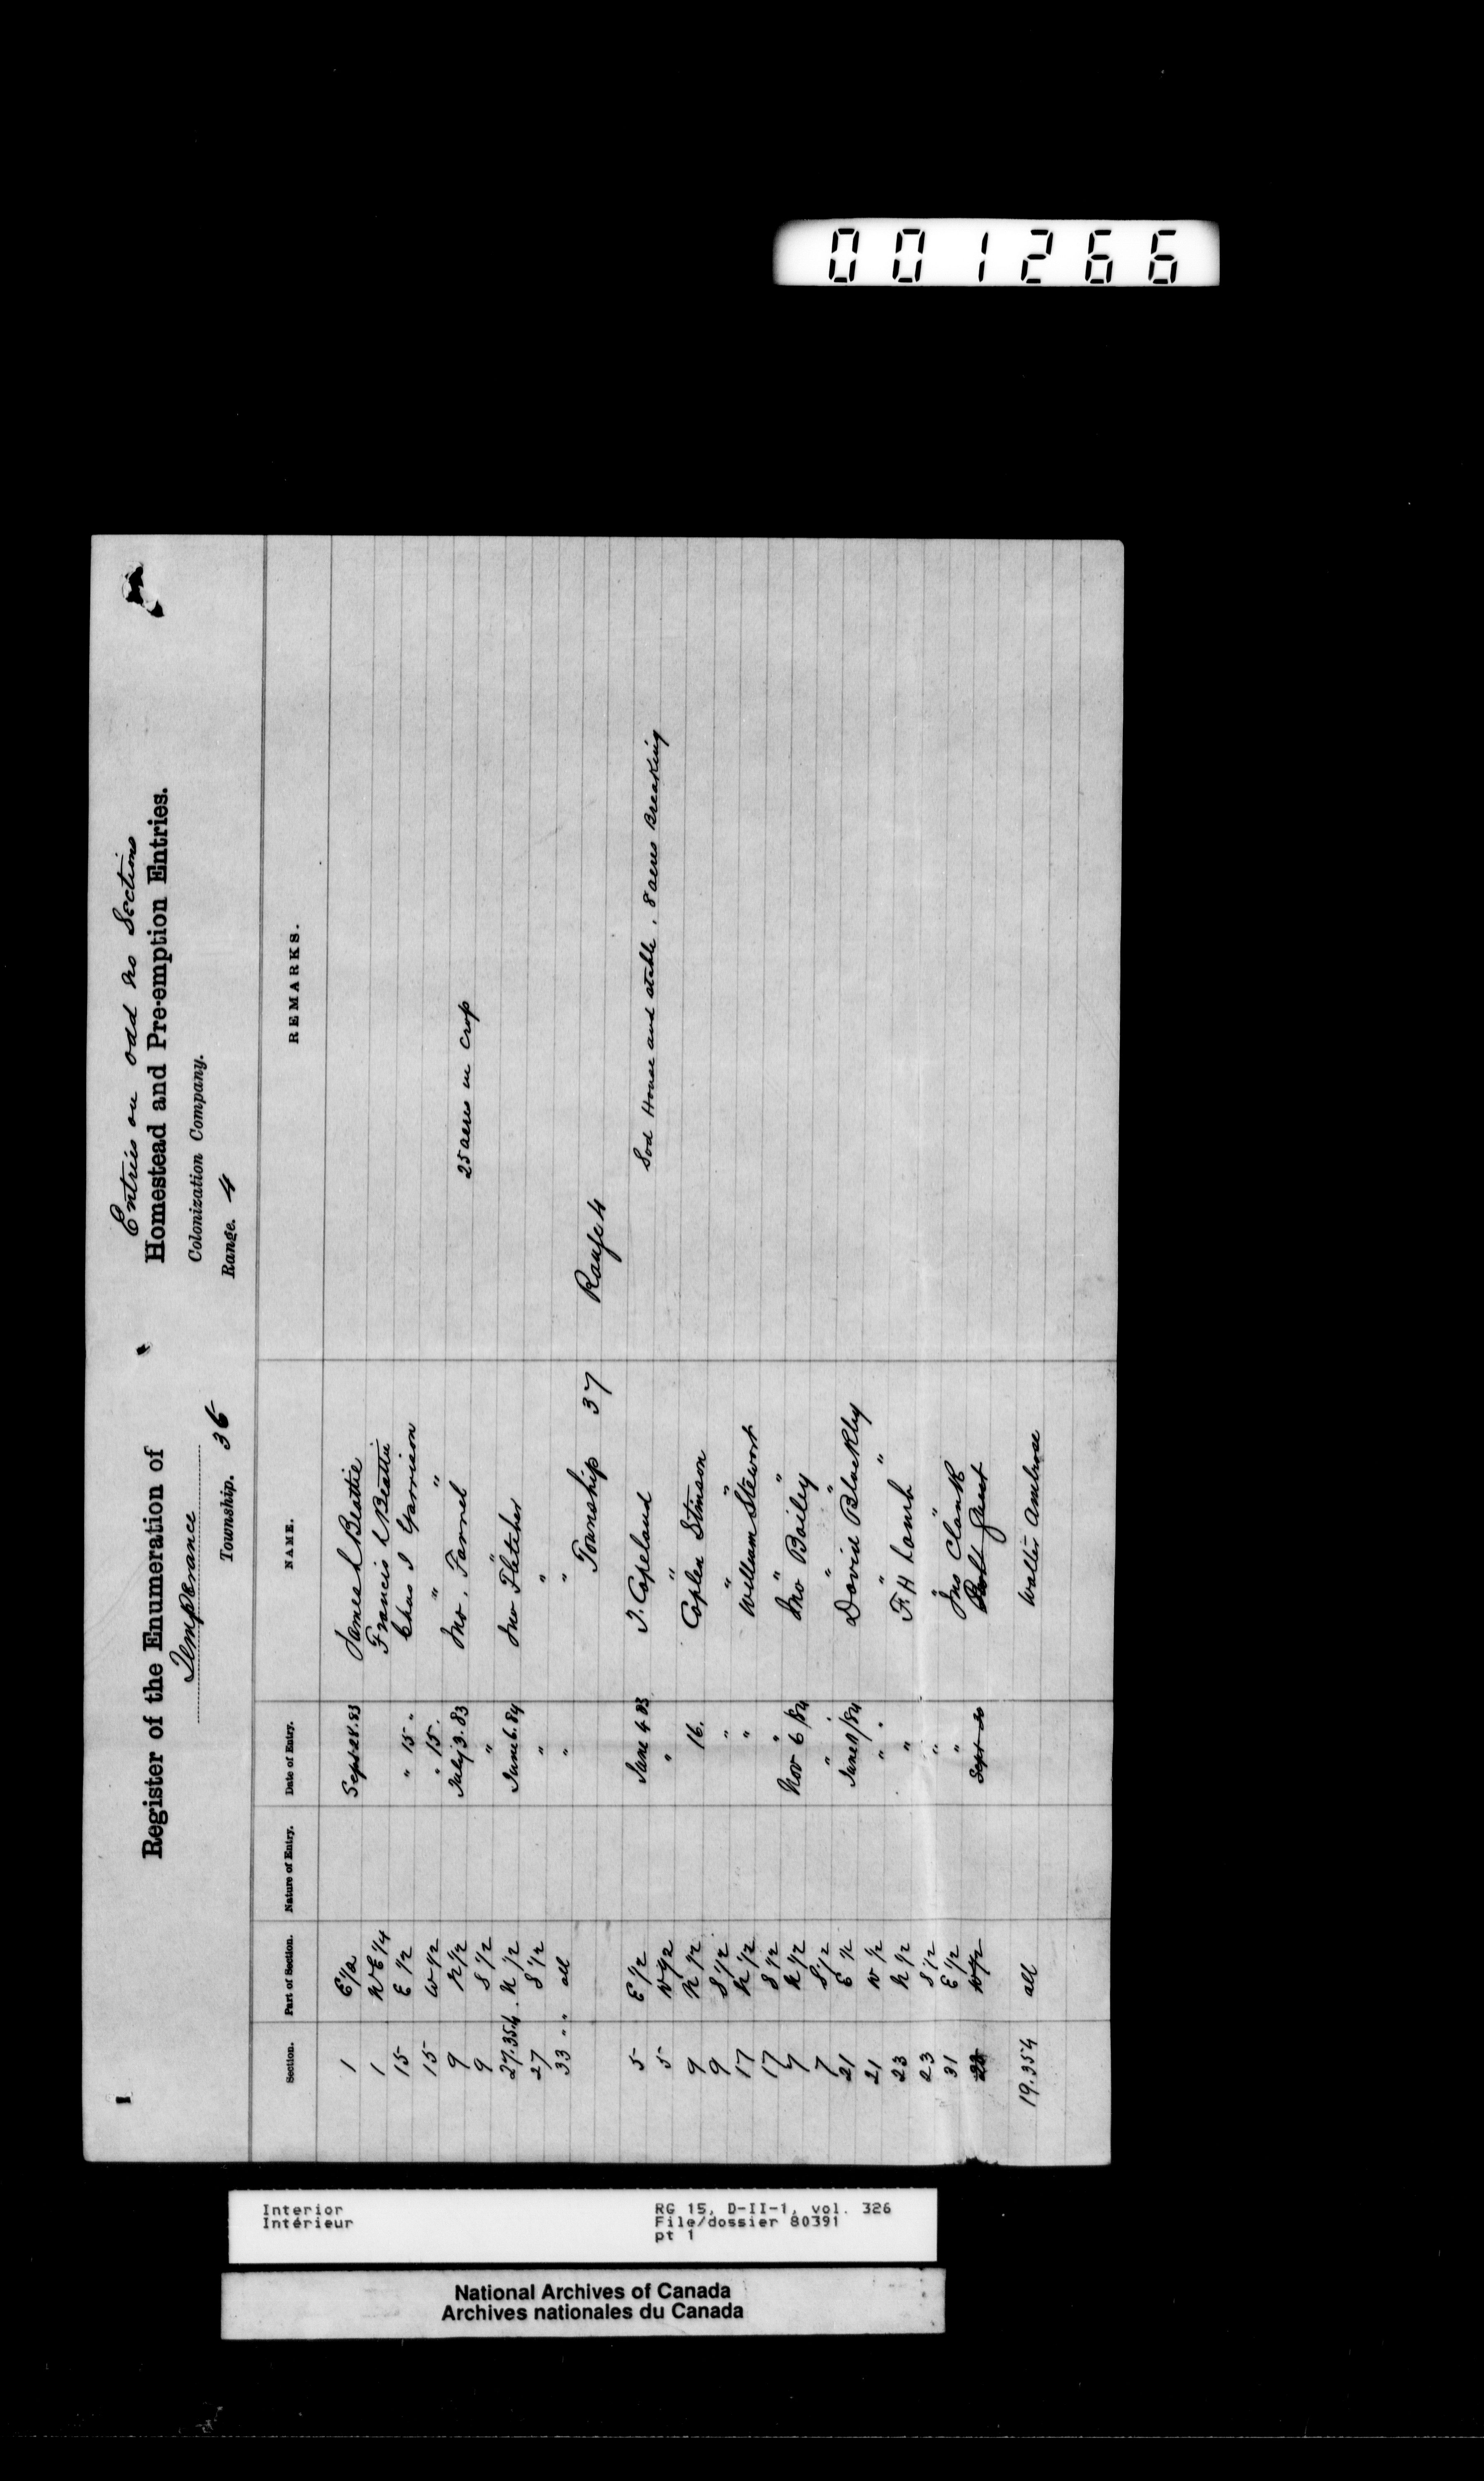 001266
Entries on odd No Sections
Register of the Enumeration of Homestead and Pre-emption Entries.
Temperance Colonization Company.
Township. 36 Range. 4
Section. Part of Section. Nature of Entry. Date of Entry. NAME. REMARKS.
1 E 1/2 Sept 28. 83 James L Beattie
1 NE 1/4 Francis L Beattie
15 E 1/2 " 15 " Chas I Garrison
15 W 1/2 " 15. " "
9 N 1/2 July 3. 83 Jno. Farrel 25 acres in crop
9 S 1/2 "
27.35.4. N 1/2 June 6. 84 Jno Fletcher
27 S 1/2 " "
33 " " all " "
Township 37 Range 4
5 E 1/2 June 4 83 T. Copeland Sod House and stable, 8 acres Breaking
5 W 1/2 " "
9 N 1/2 16. Coplen Stinson
9 S 1/2 " " "
17 N 1/2 " William Stewart
17 S 1/2 " " "
7 N 1/2 Nov 6/84 Jno Bailey
7 S 1/2 " " "
21 E 1/2 June 9/84 David Blackley
21 W 1/2 " " " "
23 N 1/2 " F. H Lamb
23 S 1/2 " " "
31 E 1/2 " Jno Clark
W 1/2 Sept 20 Robt
19.35 4 all Walter Ambrose
Interior
Intérieur
RG 15, D-II-1, vol. 326
File/dossier 80391
pt 1
National Archives of Canada
Archives nationales du Canada